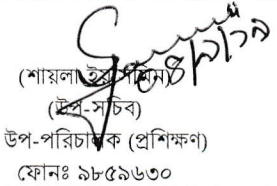 (শায়লা ইয়াসমিন)
(উপ-সচিব)
উপ-পরিচালক (প্রশিক্ষণ)
ফোনঃ ৯৮৫৯৬৩০